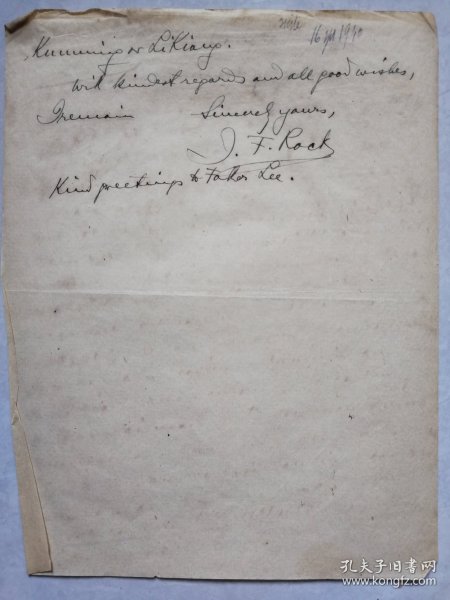 16 1940
Kunming or Likiang.
With kindest regards and all good wishes,
I remain Sincerely yours,
J. F. Rock
Kind greetings to Father Lee.
孔夫子旧书网
www.kongfz.com